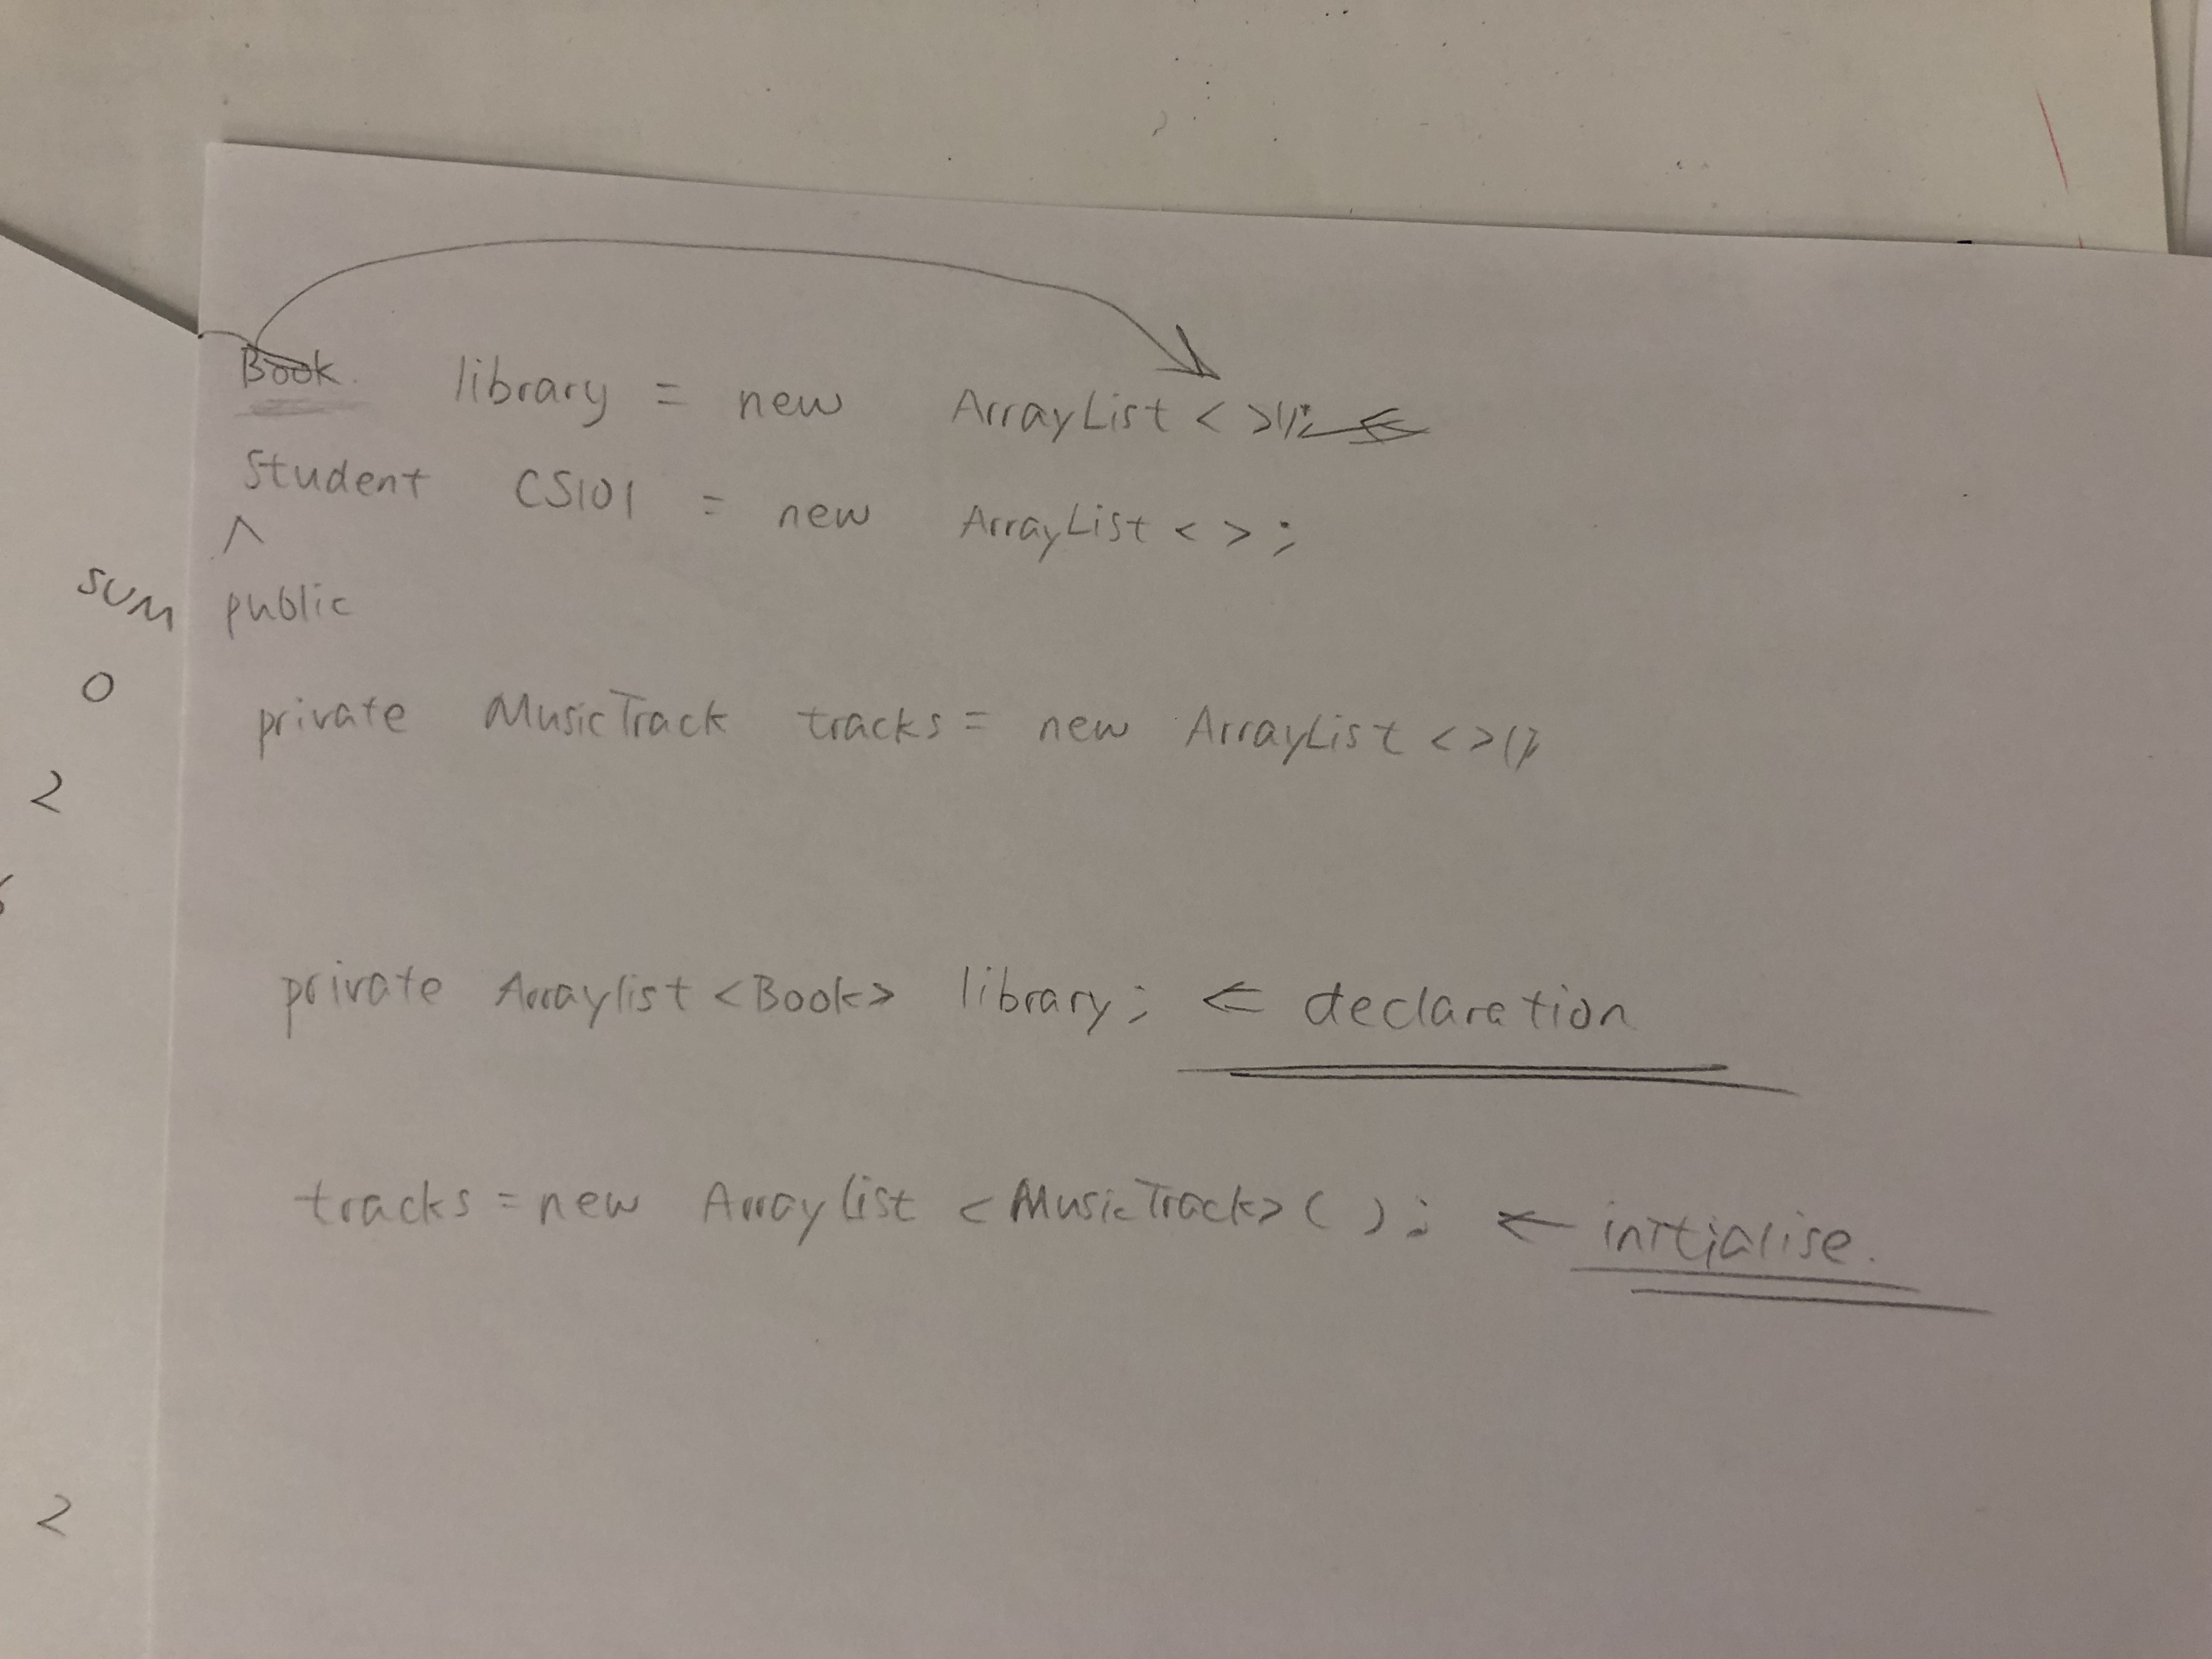 Book library = new ArrayList < >();
Student CS101 = new ArrayList < > ;
^
public
private MusicTrack tracks = new ArrayList < >()
private Arraylist <Book> library; ← declaration
tracks = new Arraylist <MusicTrack> ( ) ; ← initialise.
SUM
0
2
2